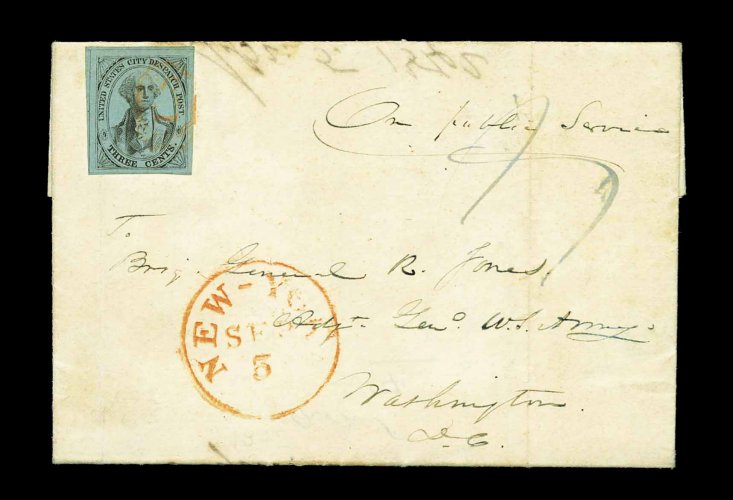 UNITED STATES CITY DESPATCH POST
THREE CENTS.
On public Service
To
Brig. General R. Jones,
Adjt. Genl. U.S. Army
Washington
D.C.
NEW-YO
SE
5